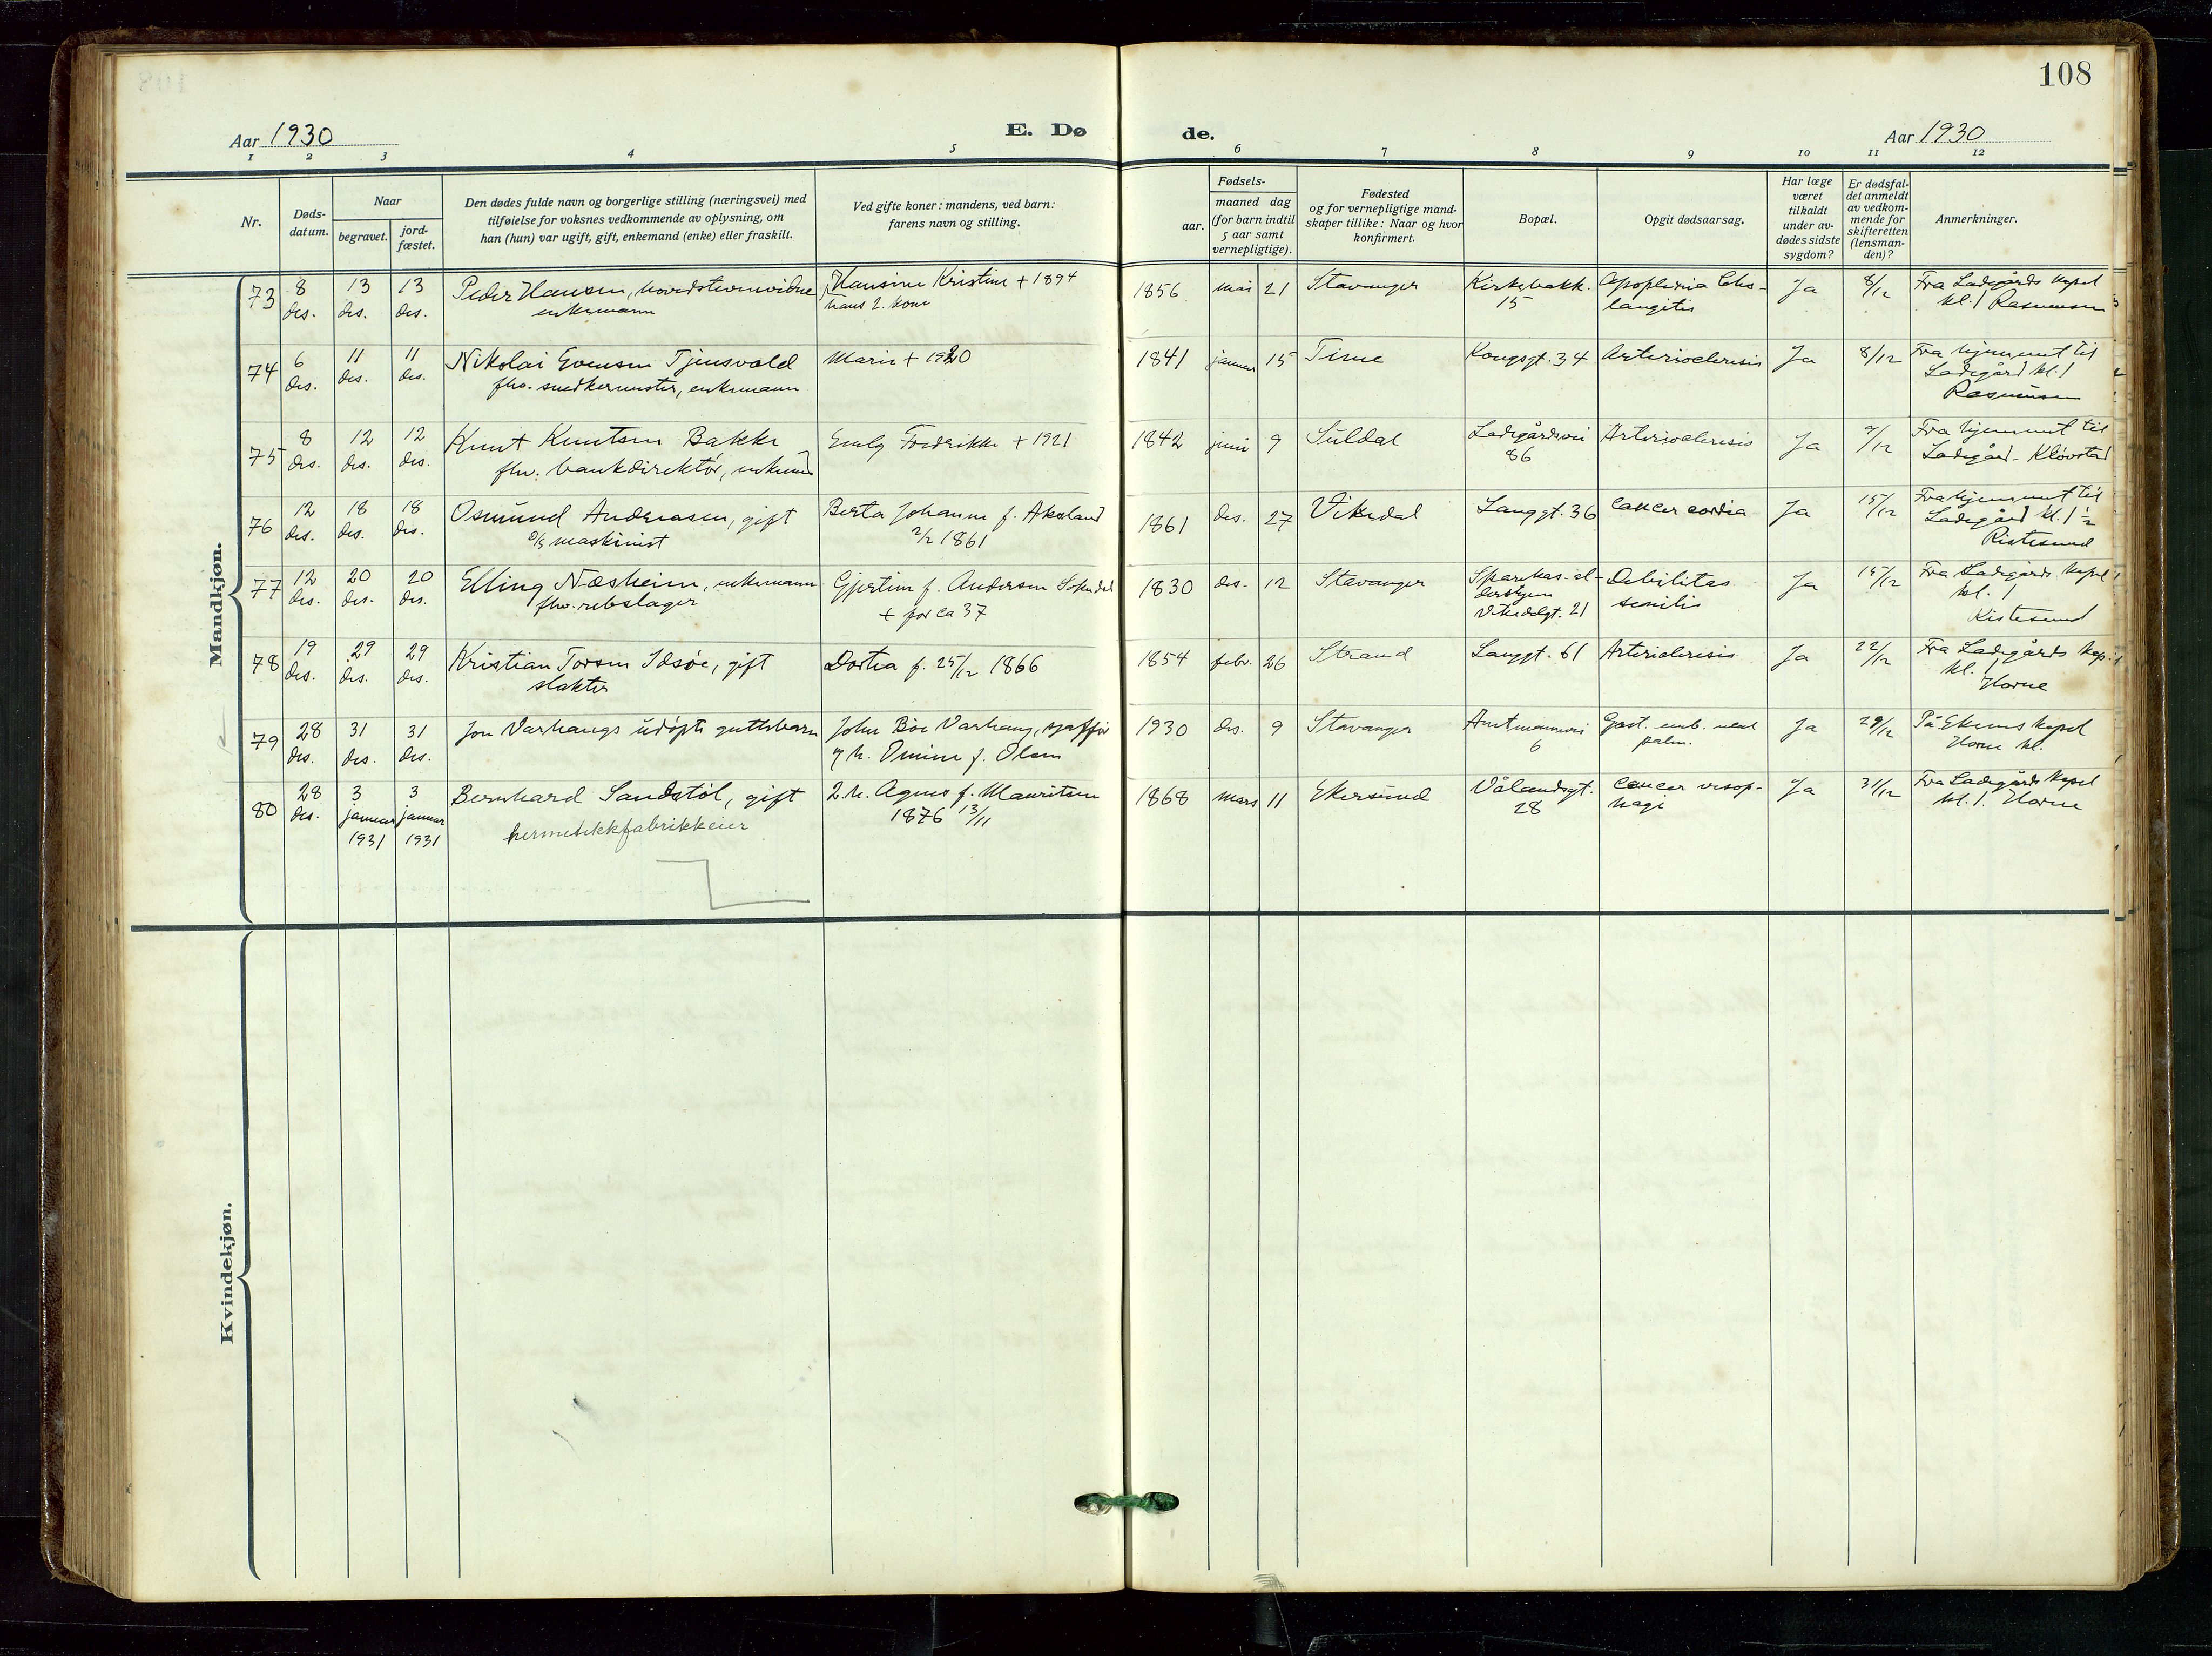 108
Aar 1930
E. Dø de.
Aar 1930
1 2 3 4 5 6 7 8 9 10 11 12
Nr.
Døds-
datum.
Naar
begravet.
jord-
fæstet.
Den dødes fulde navn og borgerlige stilling (næringsvei) med
tilføielse for voksnes vedkommende av oplysning, om
han (hun) var ugift, gift, enkemand (enke) eller fraskilt.
Ved gifte koner: mandens, ved barn:
farens navn og stilling.
aar.
Fødsels-
maaned dag
(for barn indtil
5 aar samt
vernepligtige).
Fødested
og for vernepligtige mand-
skaper tillike: Naar og hvor
konfirmert.
Bopæl.
Opgit dødsaarsag.
Har læge
været
tilkaldt
under av-
dødes sidste
sygdom?
Er dødsfal-
det anmeldt
av vedkom-
mende for
skifteretten
(lensman-
den)?
Anmerkninger.
Mandkjøn.
73 8 13 13 Peder Hansen, Hansine Kristine + 1894 1856 mai 21 Stavanger Kirkebakk. Apoplexia Cho- Ja 8/12 Fra Ladegårds kapel
des. des. des. enkemann hans 2. kone 15 langitis kl. 1 Rasmussen
74 6 11 11 Nikolai Evensen Tjensvold Marie + 1920 1841 januar 15 Time Kongsgt. 34 Arteriosclerosis Ja 8/12 Fra hjemmet til
des. des. des. fhv. snedkermester, enkemann Ladegård kl. 1
Rasmussen
75 8 12 12 Knut Knutsen Bakke Emly Fredrikke + 1921 1842 juni 9 Suldal Ladegårdsvei Arteriosclerosis Ja 9/12 Fra hjemmet til
des. des. des. fhv. bankdirektør, enkemann 86 Ladegård - Kløvstad
76 12 18 18 Osmund Andreasen, gift Berta Johanne f. Aksland 1861 des. 27 Vikedal Langgt. 36 cancer cardia Ja 15/12 Fra hjemmet til
des. des. des. d/s maskinist 2/2 1861 Ladegård kl. 1 1/2
Ristesund
77 12 20 20 Elling Næsheim, enkemann Gjertine f. Andersen 1830 des. 12 Stavanger Sparekas. al- Debilitas Ja 15/12 Fra Ladegårds kapel
des. des. des. fhv. rebslager + for ca 37 dershjem senilis kl. 1
Vikedalgt. 21 Ristesund
78 19 29 29 Kristian Torsen Idsøe, gift Dortea f. 25/12 1866 1854 febr. 26 Strand Langgt. 61 Arteriosclerosis Ja 22/12 Fra Ladegårds kapel
des. des. des. slakter kl. 1
Horne
79 28 31 31 Jon Varhaugs udøpte guttebarn John Bøe Varhaug, sjaffør 1930 des. 9 Stavanger Amtmannvei Ja 29/12 På Ekenes kapel
des. des. des. og h. Omine f. Olsen 6 Horne kl.
80 28 3 3 Bernhard Sandstøl, gift 2. h. Agnes f. Mauritsen 1868 mars 11 Ekersund Vålandsgt. Cancer oesop- Ja 31/12 Fra Ladegårds kapel
des. januar januar hermetikkfabrikkeier 1876 13/11 28 hagi kl. 1. Horne
1931 1931
Kvindekjøn.